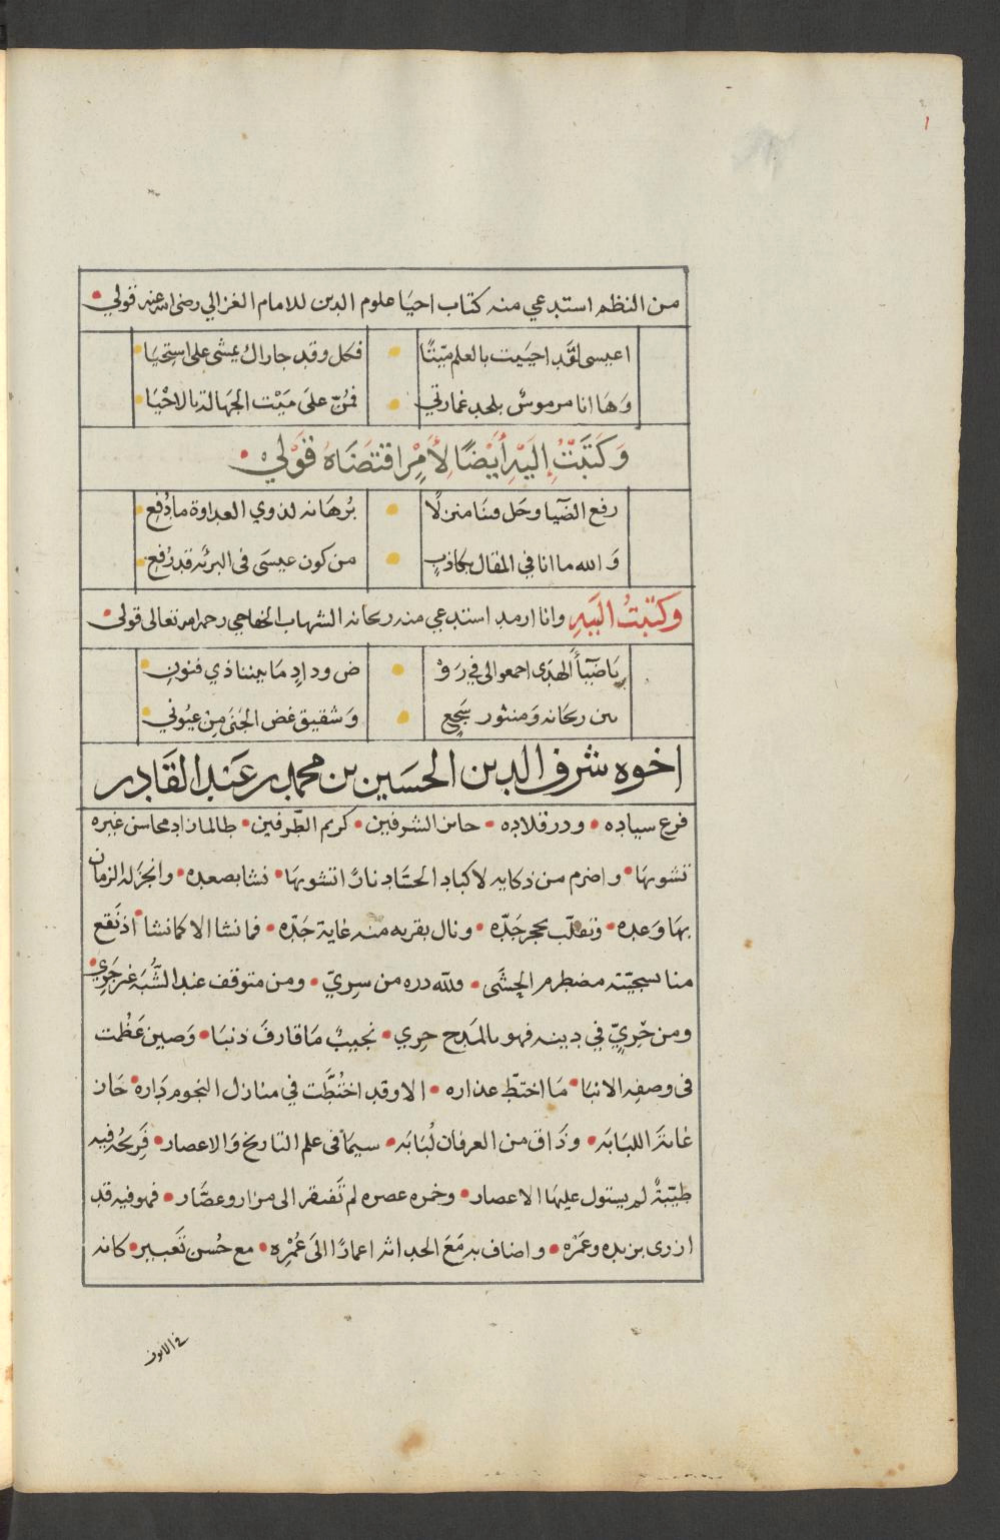 ١
من النظم استدعي منه كتاب احيا علوم الدين للامام الغزالي رضى الله عنه قولي
اعيسى لقد احييت بالعلم ميّتًا فكل وقد جاراك يمشى على استحيا
وَهَا انا مرموسٌ بلحد غمارتي فمُنّ علىَ مَيْت الجهالة بالاحْيَا
وَكَتَبْتُ إليَهِ أيَضًا لأمْرٍ اقتضَاهُ قَوْلي
رفع الضّيا وحَل منَا منزلًا بُرهَانه لذوي العداوة ما دُفِع
وَالله ما انا في المقال بكاذبٍ من كون عيسَى فى البريّه قد رُفِع
وكتبتُ اليَهِ وانا ارمد استدعي منه ريحانه الشهاب الخفاجي رحمه الله تعالى قولى
يَا ضيَآ الهدَى اجمعوا لى في رَوْ ض ودادٍ مَا بيننا ذي فنونِ
بين ريحَانه وَمنثور سَجعٍ وَشقيق غض الجَنىَ مِن عيُوني
اخوه شرف الدين الحسَين بن محمد بن عبَد القَادر
فرع سياده ودر قلاده حاىن الشرفين كريم الطّرفين طالما زاد محاسن غيره
تشويهَا واضرم من ذكايه لاكباد الحسّاد نارًا تشويهَا نشا بصعده وانجز له الزمان
بهَا وَعده وتقلّب بحجر جَدّه ونال بقربه منه غاية جَدّه فما نشا الا كما نشا اذ نَقع
منا سجيّته مضطرم الحِشَى ولله دره من سِريّ ومن متوقف عند الشُّبَه غير جَري
ومن حَرِيّ في دينه فهو بالمَدِح حِري نجيبٌ مَا قارفَ ذنبَا وَصين عَظُمت
فى وصفه الانبَا مَا اختطّ عذاره الا وقد اختُطَّت في منازل النجوم دَاره حَاز
غاية اللبَابَه وذَاق من العرفان لُبَابَه سيمَا فى علم التاريخ وَالاعصار فَرِيحُه فيه
طيّبةٌ لم يستول عليهَا الاعصار وخمره عصره لم تَفتقر الى مزار وعصَّار فهو فيه قد
ازرى بزيده وعَمْره واضاف به مَعَ الحداثه اعمارًا الىَ عُمْرِه مع حُسن تَعبير كانه
في الانوف